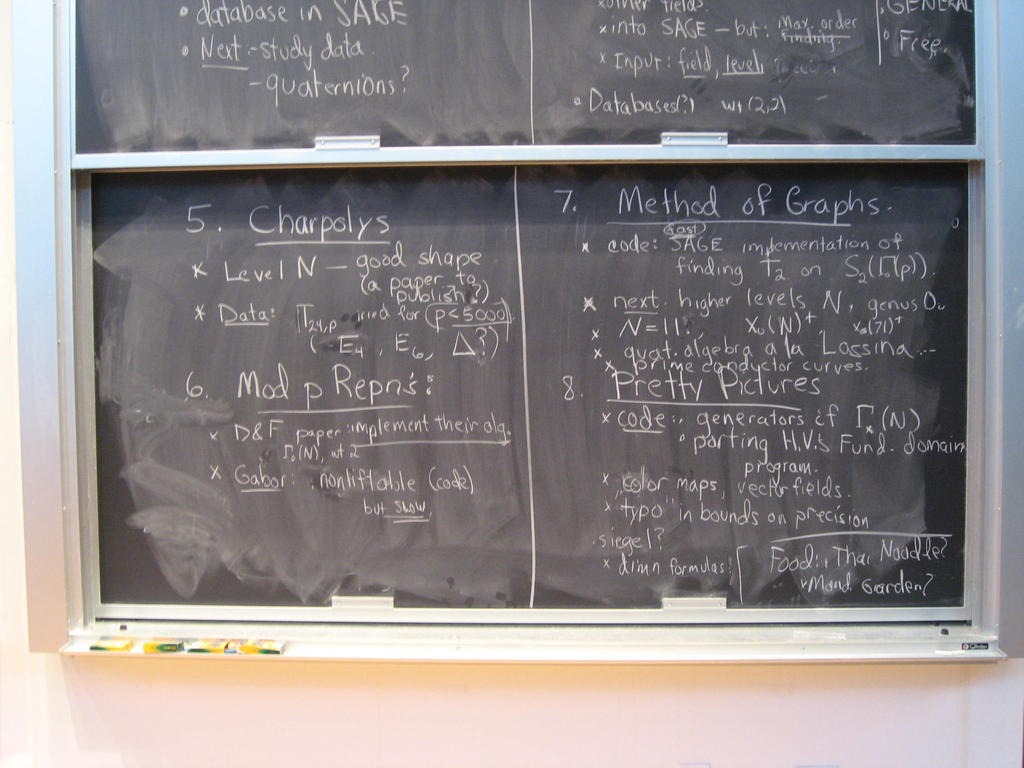 • database in SAGE
• Next - study data
- quaternions?
× other fields.
× into SAGE - but: Max. order finding.
× Input: field, level,
• Databases(?) wt (2,2)
GENERAL
• Free.
5. Charpolys
× Level N - good shape
(a paper to publish?)
× Data: for (p<5000),
(E₄, E₆, Δ?)
6. Mod p Repn's:
× D&F paper: implement their alg.
Γ₀(N), wt 2
× Gabor: nonliftable (code)
but slow
7. Method of Graphs.
× code: (fast) SAGE implementation of
finding T₂ on S₂(Γ₀(p)).
× next: higher levels N, genus 0.
× N=11? X₀(N)⁺ X₀(71)⁺
× quat. algebra a la Lassina...
× prime conductor curves.
8. Pretty Pictures
× code: generators of (N)
• porting H.V.'s Fund. domain
program.
× color maps, vector fields.
× typo in bounds on precision
siegel?
× dim'n formulas?
Food: Thai Noodle?
Mand. Garden?